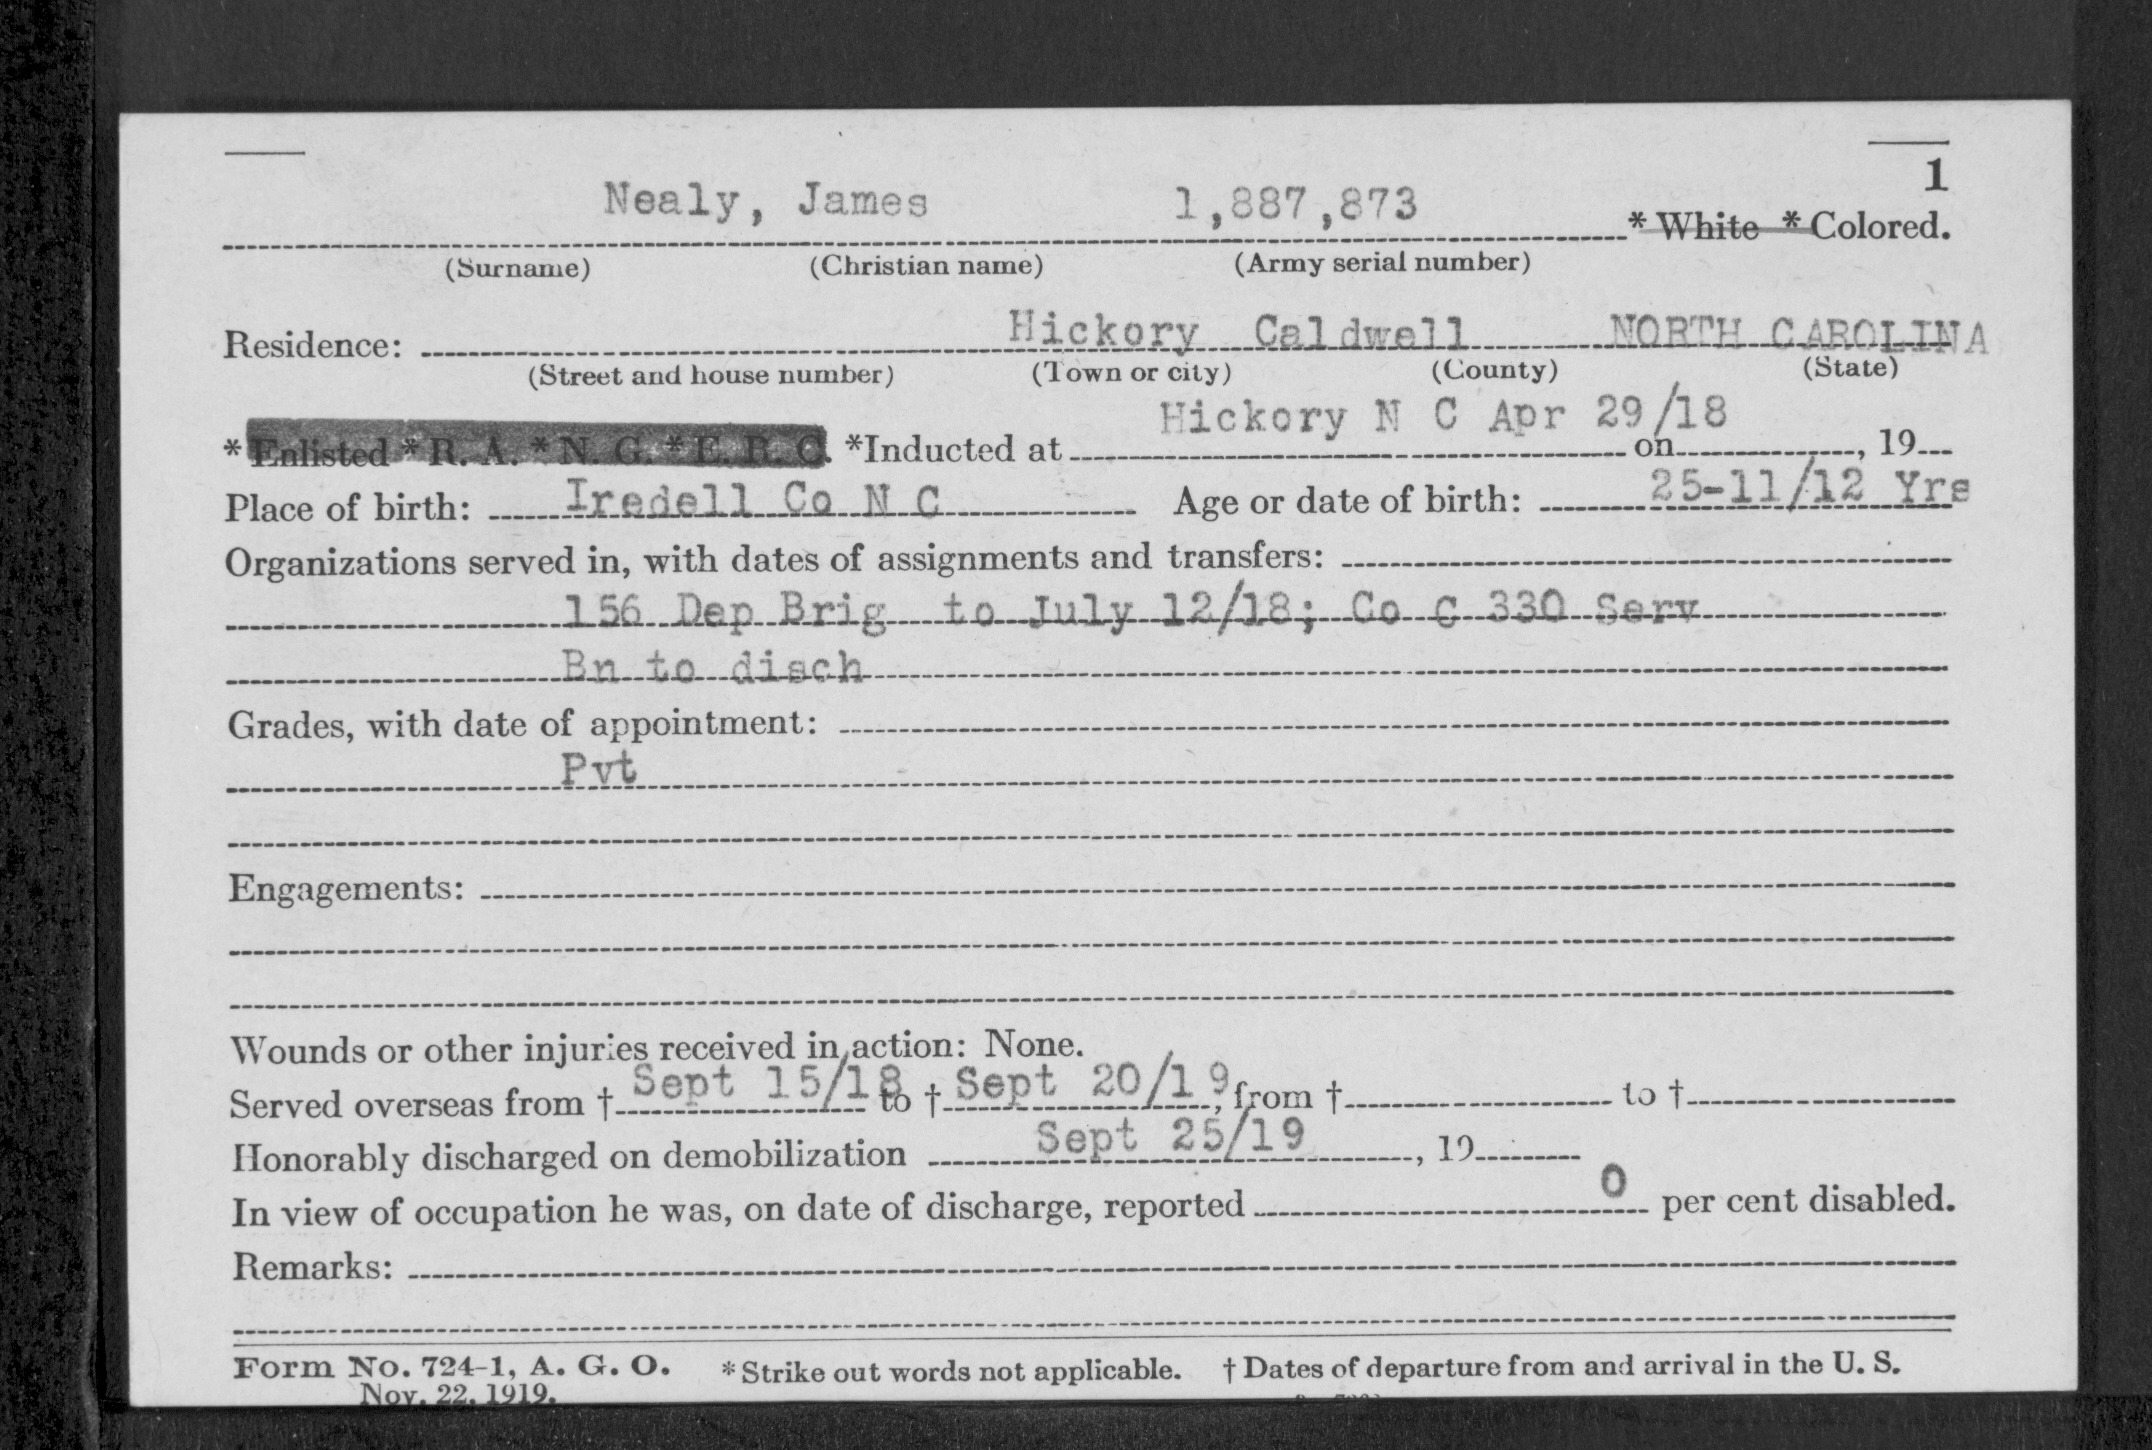 1
Nealy, James 1,887,873 * White * Colored.
(Surname) (Christian name) (Army serial number)
Residence: Hickory Caldwell NORTH CAROLINA
(Street and house number) (Town or city) (County) (State)
* Enlisted * R. A. * N. G. * E. R. C. *Inducted at Hickory N C Apr 29/18 on, 19
Place of birth: Iredell Co N C Age or date of birth: 25-11/12 Yrs
Organizations served in, with dates of assignments and transfers:
156 Dep Brig to July 12/18; Co C 330 Serv
Bn to disch
Grades, with date of appointment:
Pvt
Engagements:
Wounds or other injuries received in action: None.
Served overseas from † Sept 15/18 to † Sept 20/19, from † to †
Honorably discharged on demobilization Sept 25/19, 19
In view of occupation he was, on date of discharge, reported 0 per cent disabled.
Remarks:
Form No. 724-1, A. G. O. * Strike out words not applicable. † Dates of departure from and arrival in the U. S.
Nov. 22, 1919.